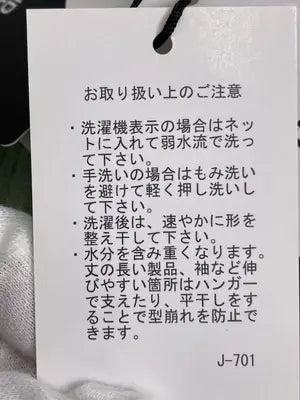 お取り扱い上のご注意
・洗濯機表示の場合はネッ
トに入れて弱水流で洗っ
て下さい。
・手洗いの場合はもみ洗い
を避けて軽く押し洗いし
て下さい。
・洗濯後は、速やかに形を
整え干して下さい。
・水分を含み重くなります。
丈の長い製品、袖など伸
びやすい箇所はハンガー
で支えたり、平干しをす
ることで型崩れを防止で
きます。
J-701